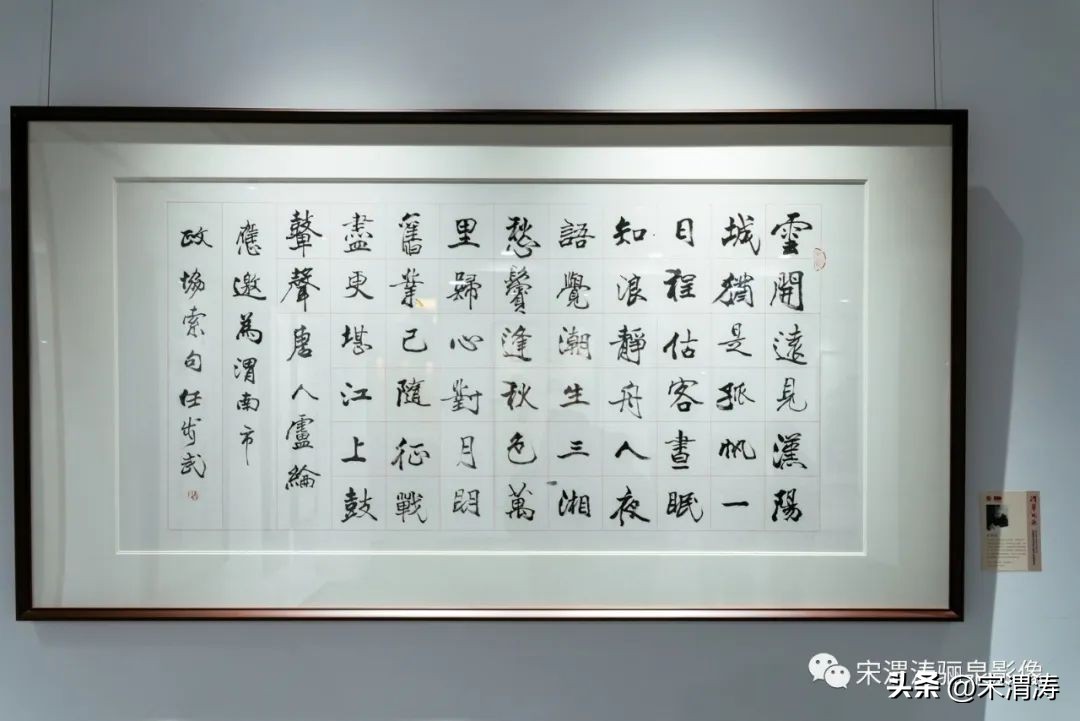 雲開遠見漢陽
城猶是孤帆一
日程估客晝眠
知浪靜舟人夜
語覺潮生三湘
愁鬢逢秋色萬
里歸心對月明
舊業已隨征戰
盡更堪江上鼓
鼙聲唐人盧綸
應邀為渭南市
政協索句任步武
宋渭涛骊影像
头条 @宋渭涛